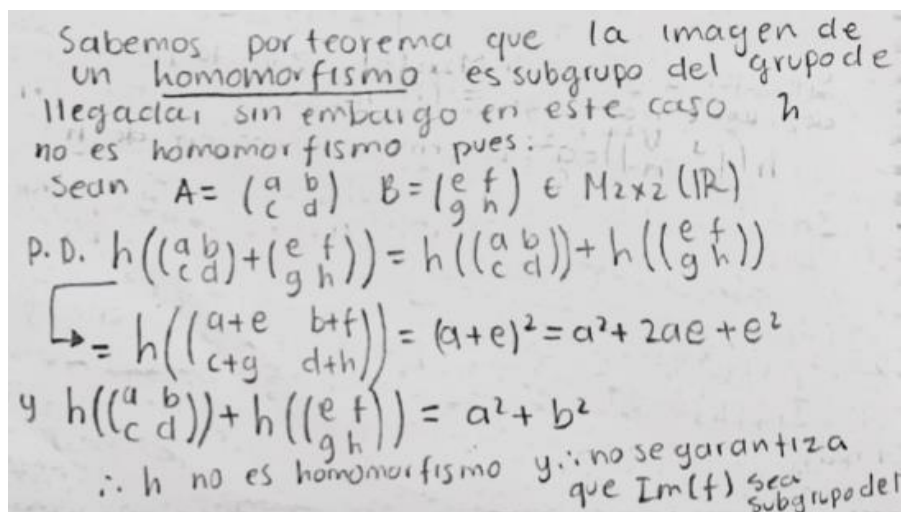 Sabemos por teorema que la imagen de
un homomorfismo es subgrupo del grupo de
llegada, sin embargo en este caso h
no es homomorfismo pues:
Sean A = (a b c d) B = (e f g h) ∈ M2x2 (IR)
P.D. h((a b c d) + (e f g h)) = h((a b c d)) + h((e f g h))
↳ = h((a+e b+f c+g d+h)) = (a+e)² = a² + 2ae + e²
y h((a b c d)) + h((e f g h)) = a² + b²
∴ h no es homomorfismo y ∴ no se garantiza
que Im(f) sea
subgrupo del